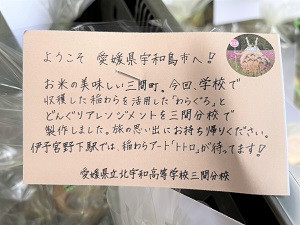 ようこそ 愛媛県宇和島市へ!!
お米の美味しい三間町。今回、学校で
収穫した稲わらを活用した「わらぐろ」と
どんぐりアレンジメントを三間分校で
製作しました。旅の思い出にお持ち帰りください。
伊予宮野下駅では、稲わらアート「トトロ」が待ってます!
愛媛県立北宇和高等学校三間分校